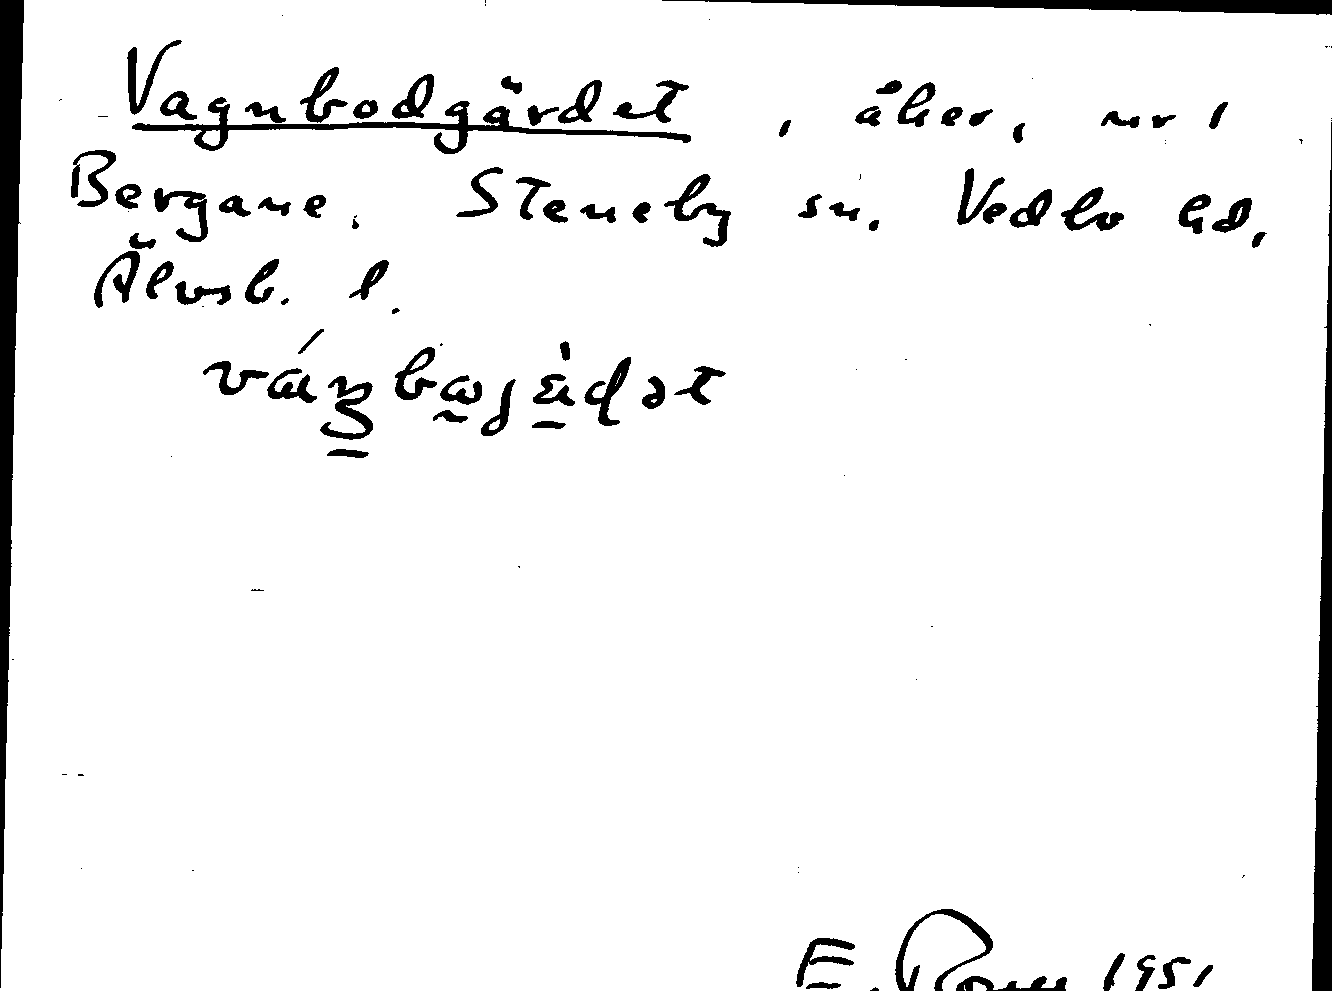 Vagnbodgärdet, åker, nr 1
Bergane. Steneby sn. Vedbo hd,
Älvsb. l.
E. 1951